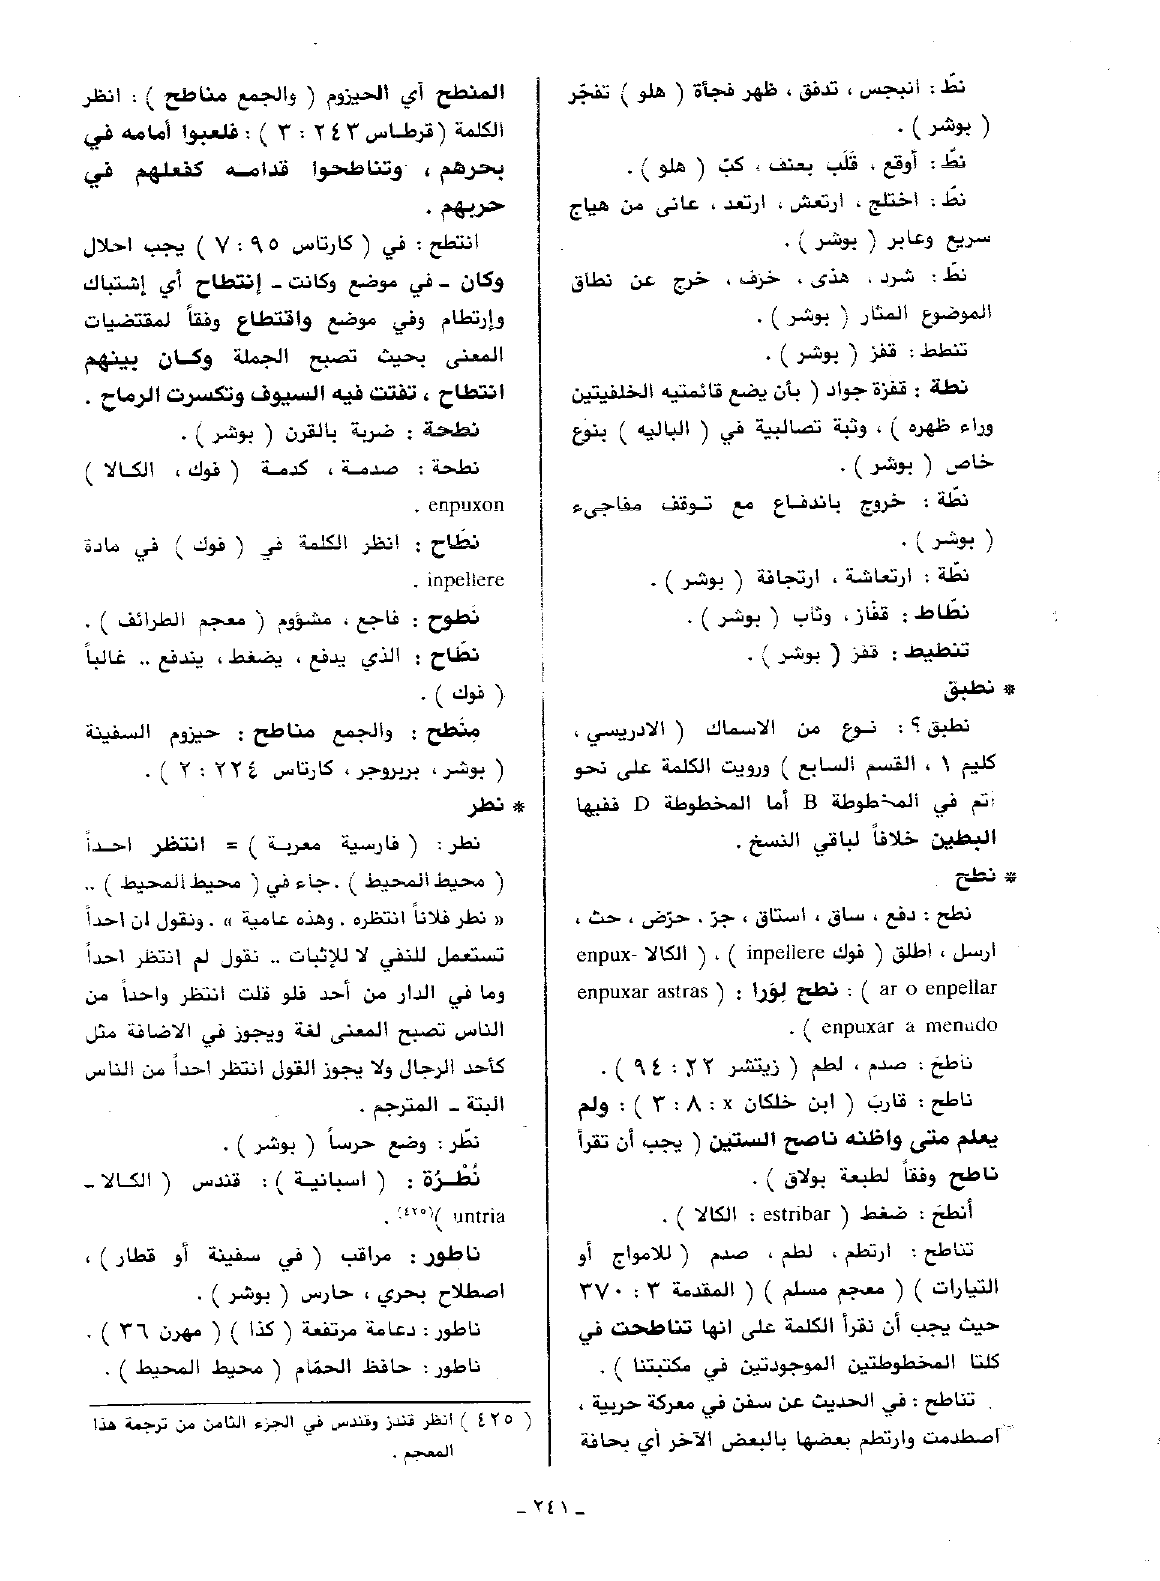 نطّ : انبجس ، تدفق ، ظهر فجأة ( هلو ) تفجّر
( بوشر ) .
نطّ : أوقع ، قَلَب بعنف ، كبّ ( هلو ) .
نطّ : اختلج ، ارتعش ، ارتعد ، عانى من هياج
سريع وعابر ( بوشر ) .
نطّ : شرد ، هذى ، خرف ، خرج عن نطاق
الموضوع المثار ( بوشر ) .
تنطط : قفز ( بوشر ) .
نطة : قفزة جواد ( بأن يضع قائمتيه الخلفيتين
وراء ظهره ) ، وثبة تصالبية في ( الباليه ) بنوع
خاص ( بوشر ) .
نطّة : خروج باندفاع مع توقف مفاجيء
( بوشر ) .
نطّة : ارتعاشة ، ارتجافة ( بوشر ) .
نطّاط : قفّاز ، وثاب ( بوشر ) .
تنطيط : قفز ( بوشر ) .
* نطبق
نطبق ؟ : نوع من الاسماك ( الادريسي ،
كليم ١ ، القسم السابع ) ورويت الكلمة على نحو
أتم في المخطوطة B أما المخطوطة D ففيها
البطين خلافاً لباقي النسخ .
* نطح
نطح : دفع ، ساق ، استاق ، جرّ . حرّض ، حث ،
ارسل ، اطلق ( فوك inpellere ) ، ( الكالا enpux-
ar o enpellar ) : نطح لوَرا : ( enpuxar astras
enpuxar a menudo ) .
ناطَح : صدم ، لطم ( زيتشر ٢٢ : ٩٤ ) .
ناطح : قاربَ ( ابن خلكان x : ٨ : ٣ ) : ولم
يعلم متى واظنه ناصح الستين ( يجب أن تقرأ
ناطح وفقاً لطبعة بولاق ) .
أنطَح : ضغط ( estribar : الكالا ) .
تناطح : ارتطم ، لطم ، صدم ( للامواج أو
التيارات ) ( معجم مسلم ) ( المقدمة ٣ : ٣٧٠
حيث يجب أن نقرأ الكلمة على انها تناطحت في
كلتا المخطوطتين الموجودتين في مكتبتنا ) .
تناطح : في الحديث عن سفن في معركة حربية ،
اصطدمت وارتطم بعضها بالبعض الآخر أي بحافة
المنطح أي الحيزوم ( والجمع مناطح ) : انظر
الكلمة ( قرطاس ٢٤٣ : ٣ ) : فلعبوا أمامه في
بحرهم ، وتناطحوا قدامه كفعلهم في
حربهم .
انتطح : في ( كارتاس ٩٥ : ٧ ) يجب احلال
وكان - في موضع وكانت - إنتطاح أي إشتباك
وإرتطام وفي موضع واقتطاع وفقاً لمقتضيات
المعنى بحيث تصبح الجملة وكان بينهم
انتطاح ، تفتت فيه السيوف وتكسرت الرماح .
نطحة : ضربة بالقرن ( بوشر ) .
نطحة : صدمة ، كدمة ( فوك ، الكالا )
enpuxon .
نطّاح : انظر الكلمة في ( فوك ) في مادة
inpellere .
نَطوح : فاجع ، مشؤوم ( معجم الطرائف ) .
نطّاح : الذي يدفع ، يضغط ، يندفع .. غالباً
( فوك ) .
مِنطَح : والجمع مناطح : حيزوم السفينة
( بوشر ، بربروجر ، كارتاس ٢٢٤ : ٢ ) .
* نطر
نطر : ( فارسية معربة ) = انتظر احداً
( محيط المحيط ) . جاء في ( محيط المحيط ) ..
« نطر فلاناً انتظره . وهذه عامية » . ونقول ان احداً
تستعمل للنفي لا للإثبات .. نقول لم انتظر احداً
وما في الدار من أحد فلو قلت انتظر واحداً من
الناس تصبح المعنى لغة ويجوز في الاضافة مثل
كأحد الرجال ولا يجوز القول انتظر احداً من الناس
البتة - المترجم .
نطّر : وضع حرساً ( بوشر ) .
نُطْرُة : ( اسبانية ) : قندس ( الكالا -
untria )(٤٢٥) .
ناطور : مراقب ( في سفينة أو قطار ) ،
اصطلاح بحري ، حارس ( بوشر ) .
ناطور : دعامة مرتفعة ( كذا ) ( مهرن ٣٦ ) .
ناطور : حافظ الحمّام ( محيط المحيط ) .
( ٤٢٥ ) انظر قندز وقندس في الجزء الثامن من ترجمة هذا
المعجم .
- ٢٤١ -